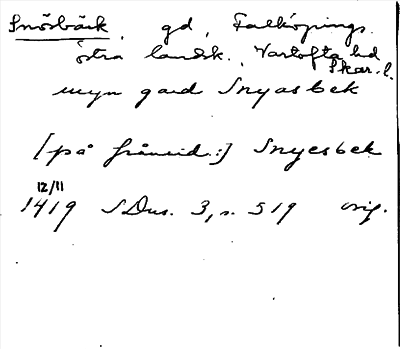 Snösbäck, gd, Falköpings
östra landsk., Vartofta hd
Skar. l.
myn gard Snyasbek
[på frånsid.:] Snyesbek
12/11
1419 SDns. 3, s. 519 orig.